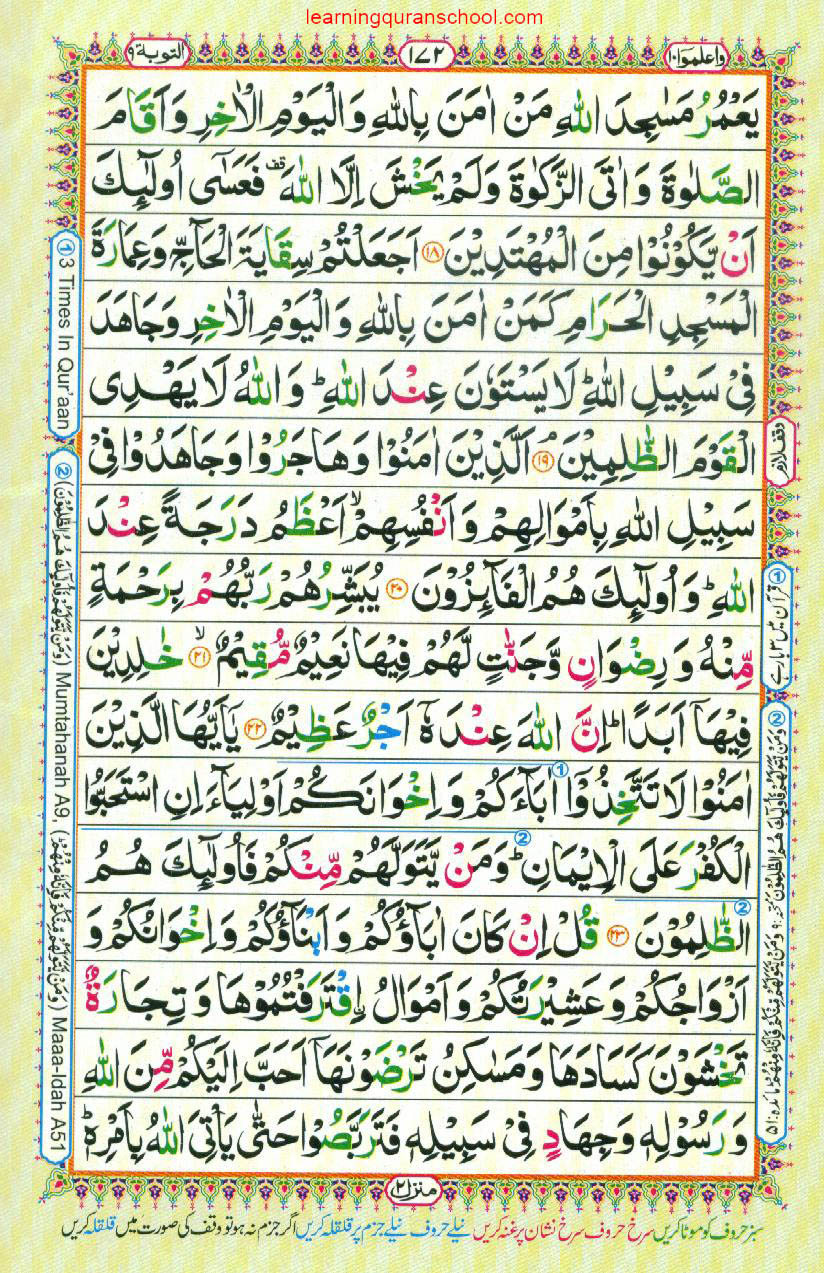 learningquranschool.com
واعلموا ۱۰
۱۷۲
التوبة ۹
يَعْمُرُ مَسٰجِدَ اللّٰهِ مَنْ اٰمَنَ بِاللّٰهِ وَالْيَوْمِ الْاٰخِرِ وَاَقَامَ
الصَّلٰوةَ وَاٰتَى الزَّكٰوةَ وَلَمْ يَخْشَ اِلَّا اللّٰهَ ۫ فَعَسٰٓى اُولٰٓئِكَ
اَنْ يَّكُوْنُوْا مِنَ الْمُهْتَدِيْنَ ۱۸ اَجَعَلْتُمْ سِقَايَةَ الْحَآجِّ وَعِمَارَةَ
الْمَسْجِدِ الْحَرَامِ كَمَنْ اٰمَنَ بِاللّٰهِ وَالْيَوْمِ الْاٰخِرِ وَجَاهَدَ
فِيْ سَبِيْلِ اللّٰهِ ؕ لَا يَسْتَوٗنَ عِنْدَ اللّٰهِ ؕ وَاللّٰهُ لَا يَهْدِى
الْقَوْمَ الظّٰلِمِيْنَ ۱۹ اَلَّذِيْنَ اٰمَنُوْا وَهَاجَرُوْا وَجَاهَدُوْا فِيْ
سَبِيْلِ اللّٰهِ بِاَمْوَالِهِمْ وَاَنْفُسِهِمْ ۙ اَعْظَمُ دَرَجَةً عِنْدَ
اللّٰهِ ؕ وَاُولٰٓئِكَ هُمُ الْفَآئِزُوْنَ ۲۰ يُبَشِّرُهُمْ رَبُّهُمْ بِرَحْمَةٍ
مِّنْهُ وَرِضْوَانٍ وَّجَنّٰتٍ لَّهُمْ فِيْهَا نَعِيْمٌ مُّقِيْمٌ ۙ ۲۱ خٰلِدِيْنَ
فِيْهَآ اَبَدًا ؕ اِنَّ اللّٰهَ عِنْدَهٗٓ اَجْرٌ عَظِيْمٌ ۲۲ يٰٓاَيُّهَا الَّذِيْنَ
اٰمَنُوْا لَا تَتَّخِذُوْٓا اٰبَآءَكُمْ وَاِخْوَانَكُمْ اَوْلِيَآءَ اِنِ اسْتَحَبُّوا
الْكُفْرَ عَلَى الْاِيْمَانِ ؕ وَمَنْ يَّتَوَلَّهُمْ مِّنْكُمْ فَاُولٰٓئِكَ هُمُ
الظّٰلِمُوْنَ ۲۳ قُلْ اِنْ كَانَ اٰبَآؤُكُمْ وَاَبْنَآؤُكُمْ وَاِخْوَانُكُمْ وَ
اَزْوَاجُكُمْ وَعَشِيْرَتُكُمْ وَاَمْوَالُ اِۨقْتَرَفْتُمُوْهَا وَتِجَارَةٌ
تَخْشَوْنَ كَسَادَهَا وَمَسٰكِنُ تَرْضَوْنَهَآ اَحَبَّ اِلَيْكُمْ مِّنَ اللّٰهِ
وَرَسُوْلِهٖ وَجِهَادٍ فِيْ سَبِيْلِهٖ فَتَرَبَّصُوْا حَتّٰى يَاْتِىَ اللّٰهُ بِاَمْرِهٖ ؕ
① 3 Times In Qur'aan
② (وَمَنْ يَّتَوَلَّهُمْ فَاُولٰٓئِكَ هُمُ الظّٰلِمُوْنَ) Mumtahanah A9 (وَمَنْ يَّتَوَلَّهُمْ مِّنْكُمْ فَاِنَّهٗ مِنْهُمْ) Maaa-Idah A51
وقف لازم
① قرآن میں ۳ بار ہے
② وَمَنْ يَّتَوَلَّهُمْ فَاُولٰٓئِكَ هُمُ الظّٰلِمُوْنَ وَمَنْ يَّتَوَلَّهُمْ مِّنْكُمْ فَاِنَّهٗ مِنْهُمْ مائدہ:۵۱
منزل ۲
سبز حروف کو موٹا کریں سرخ حروف سرخ نشان پر غنہ کریں نیلے حروف نیلے جزم پر قلقلہ کریں اگر جزم نہ ہو تو وقف کی صورت میں قلقلہ کریں